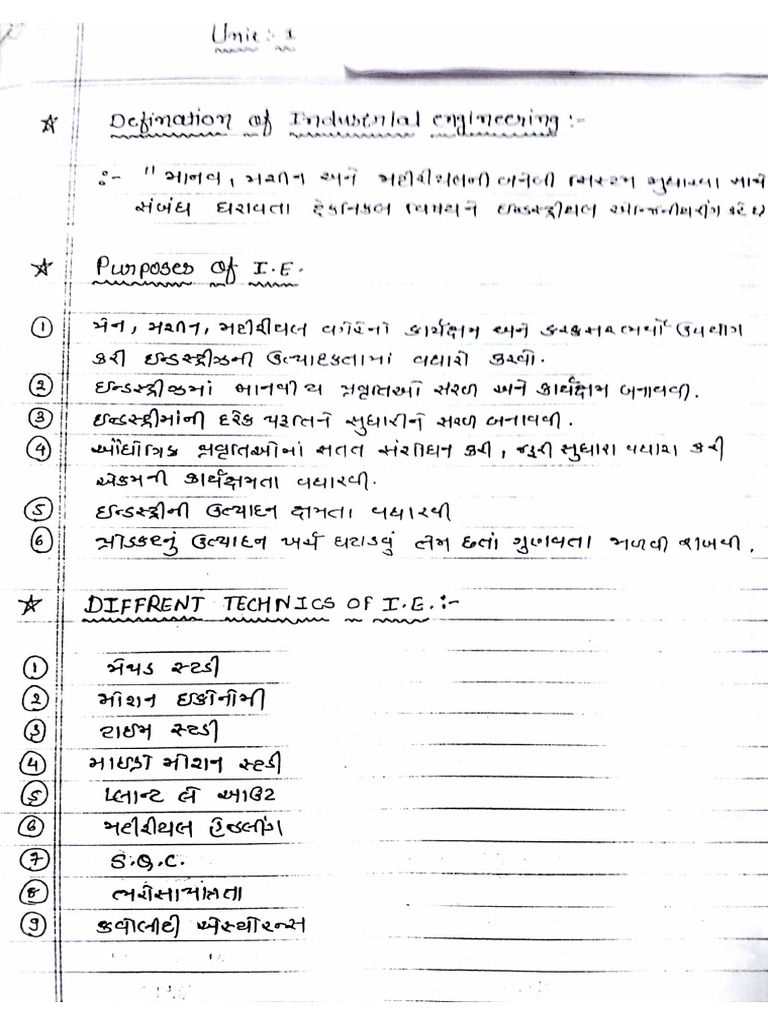 Unit : 1
☆ Defination of Industrial engineering :-
:- " માનવ, મશીન અને મટીરીયલની બનેલી સિસ્ટમ સુધારવા સાથે
સંબંધ ધરાવતા ટેકનિકલ વિષયને ઇન્ડસ્ટ્રીયલ એન્જીનીયરીંગ કહે છે
☆ Purposes of I.E.
① મેન, મશીન, મટીરીયલ વગેરેનો કાર્યક્ષમ અને કરકસરભર્યો ઉપયોગ
કરી ઇન્ડસ્ટ્રીઝની ઉત્પાદકતામાં વધારો કરવો.
② ઇન્ડસ્ટ્રીઝમાં માનવીય પ્રવૃત્તિઓ સરળ અને કાર્યક્ષમ બનાવવી.
③ ઇન્ડસ્ટ્રીમાંની દરેક પધ્ધતિને સુધારીને સરળ બનાવવી.
④ ઔદ્યોગિક પ્રવૃતિઓમાં સતત સંશોધન કરી, જરૂરી સુધારા વધારા કરી
એકમની કાર્યક્ષમતા વધારવી.
⑤ ઇન્ડસ્ટ્રીની ઉત્પાદન ક્ષમતા વધારવી
⑥ પ્રોડકટનું ઉત્પાદન ખર્ચ ઘટાડવું તેમ છતાં ગુણવતા જાળવી રાખવી.
☆ DIFFRENT TECHNICS OF I.E. :-
① મેથડ સ્ટડી
② મોશન ઇકોનોમી
③ ટાઇમ સ્ટડી
④ માઇક્રો મોશન સ્ટડી
⑤ પ્લાન્ટ લે આઉટ
⑥ મટીરીયલ હેન્ડલીંગ
⑦ S.Q.C.
⑧ ભરોસાપાત્રતા
⑨ કવોલીટી એસ્યોરન્સ